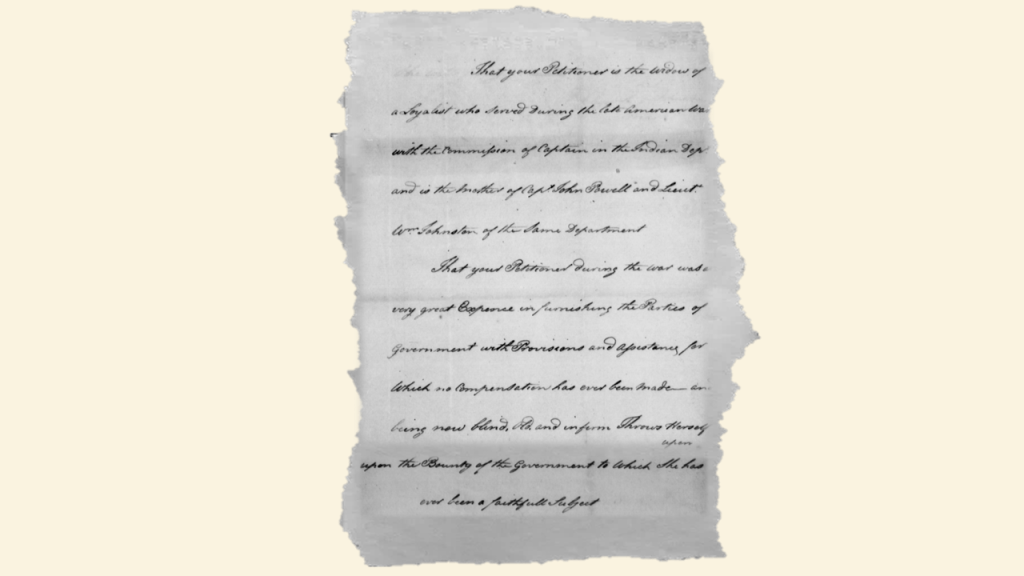 That your Petitioner is the Widow of
a Loyalist who Served During the late American Wa
with the Commission of Captain in the Indian Dep
and is the Mother of Capt. John Powell and Lieut.
Wm. Johnston of the Same Department
That your Petitioner during the war was a
very great Expence in furnishing the Parties of
Government with Provisions and Assistance, for
Which no Compensation has ever been made— an
being now blind, Old and infirm Throws Herself
upon
upon the Bounty of the Government to Which She has
ever been a faithfull Subject